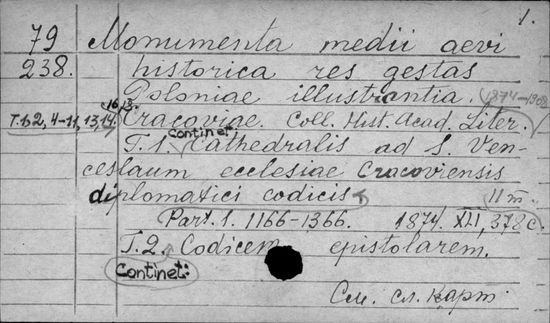 1.
79 Monumenta medii aevi
238. historica res gestas
Poloniae illustrantia. (1874-1908)
T. 1, 2, 4-11, 13, 14, 16, 18. Cracoviae. Coll. Hist. Acad. Liter.
T. 1. Continet: Cathedralis ad S. Ven-
ceslaum ecclesiae Cracoviensis
diplomatici codicis 11 т.
Part. 1. 1166-1366. 1874. XLI, 378 с.
T. 2. Codicem epistolarem.
Continet:
См. сл. карт